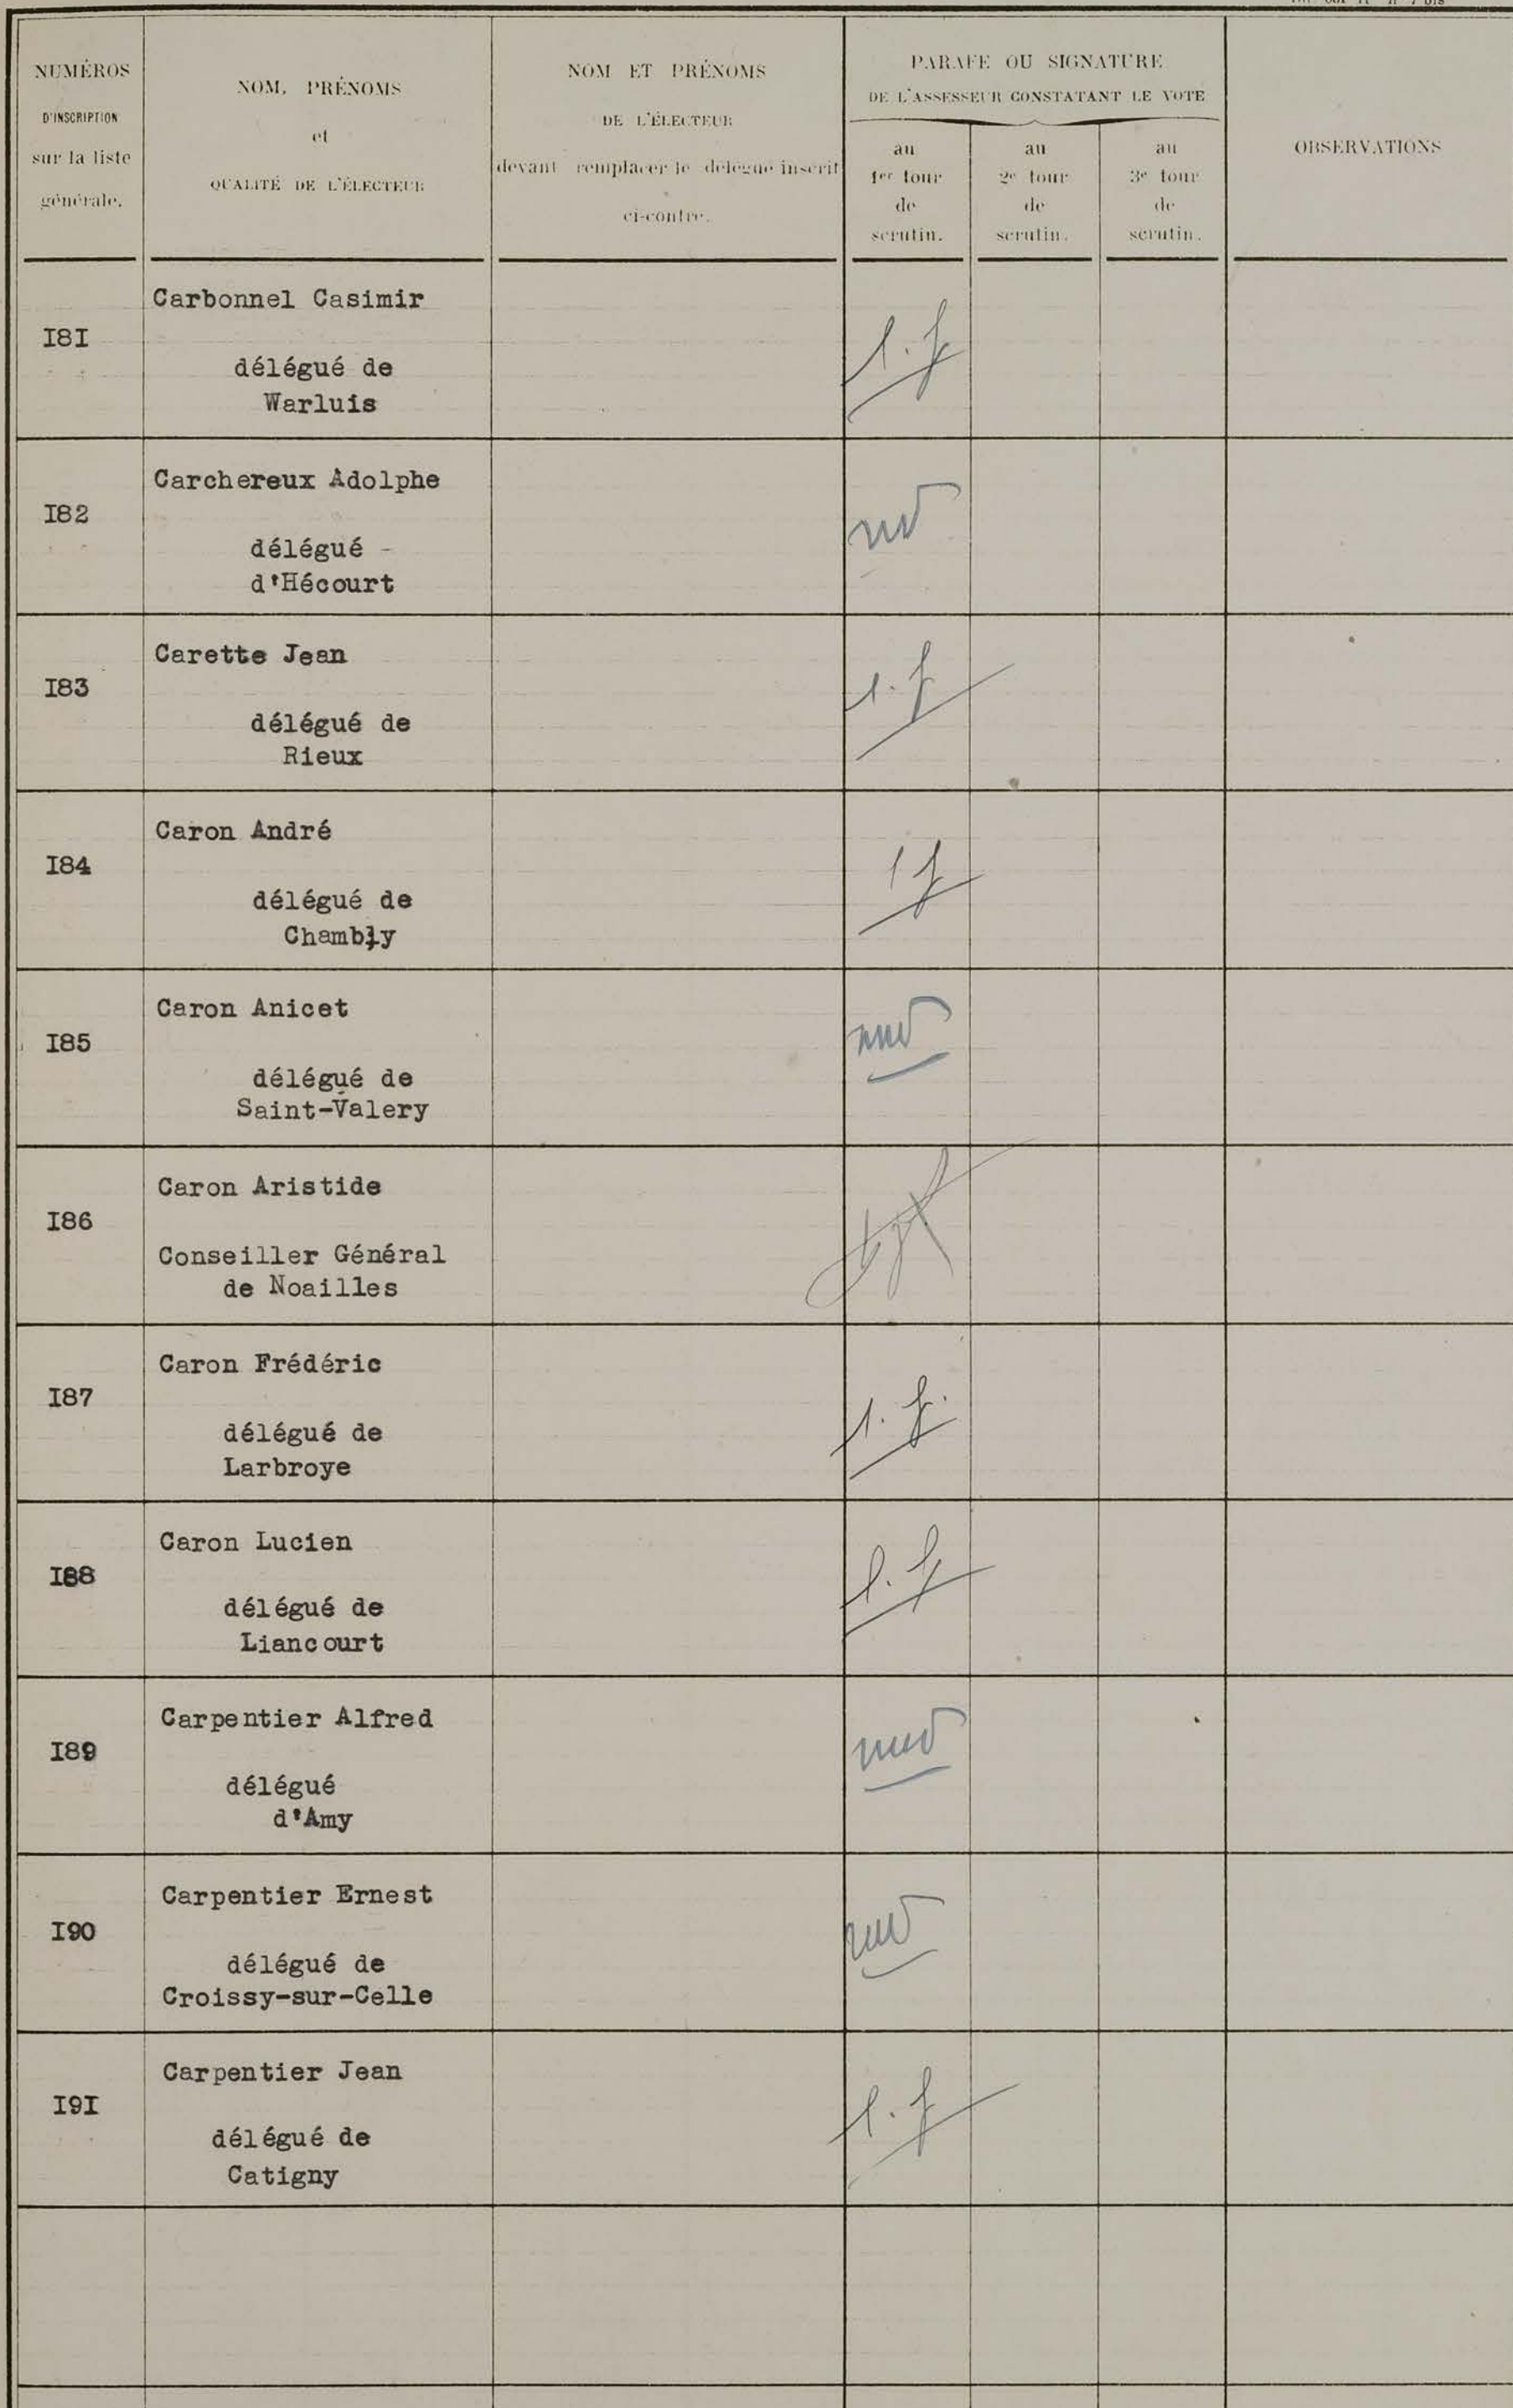 NUMÉROS
D'INSCRIPTION
sur la liste
générale.
NOM, PRÉNOMS
et
QUALITÉ DE L'ÉLECTEUR
NOM ET PRÉNOMS
DE L'ÉLECTEUR
devant remplacer le délégué inscrit
ci-contre.
PARAFE OU SIGNATURE
DE L'ASSESSEUR CONSTATANT LE VOTE
au
1er tour
de
scrutin.
au
2e tour
de
scrutin.
au
3e tour
de
scrutin.
OBSERVATIONS
I8I
Carbonnel Casimir
délégué de
Warluis
I82
Carchereux Adolphe
délégué
d'Hécourt
I83
Carette Jean
délégué de
Rieux
I84
Caron André
délégué de
Chambly
I85
Caron Anicet
délégué de
Saint-Valery
I86
Caron Aristide
Conseiller Général
de Noailles
I87
Caron Frédéric
délégué de
Larbroye
I88
Caron Lucien
délégué de
Liancourt
I89
Carpentier Alfred
délégué
d'Amy
I90
Carpentier Ernest
délégué de
Croissy-sur-Celle
I9I
Carpentier Jean
délégué de
Catigny